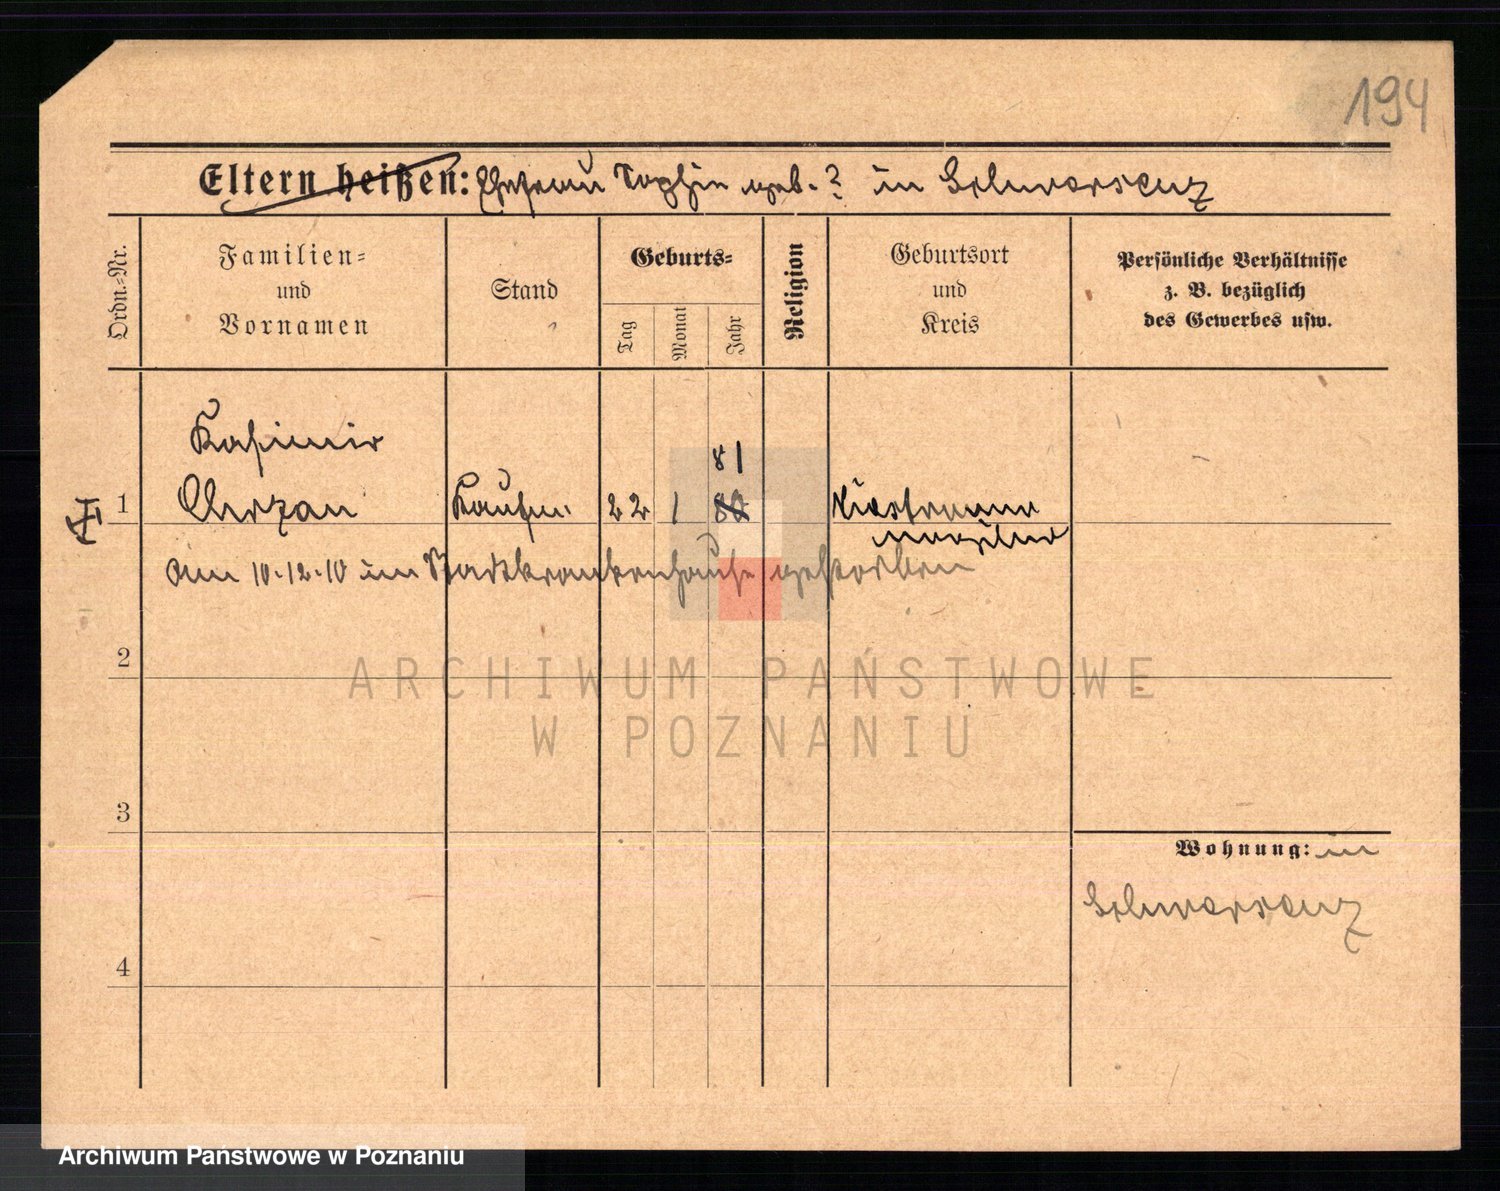 194
Eltern heißen: Ehefrau Sophie geb. ? in Schwersenz
Ordn.=Nr.
Familien=
und
Vornamen
Stand
Geburts=
Tag
Monat
Jahr
Religion
Geburtsort
und
Kreis
Persönliche Verhältnisse
z. B. bezüglich
des Gewerbes usw.
Kasimir
81
1 Chrzan Kaufm. 22 1 80
am 10.12.10 im Stadtkrankenhause gestorben
2
ARCHIWUM PAŃSTWOWE
W POZNANIU
3
Wohnung: in
Schwersenz
4
Archiwum Państwowe w Poznaniu